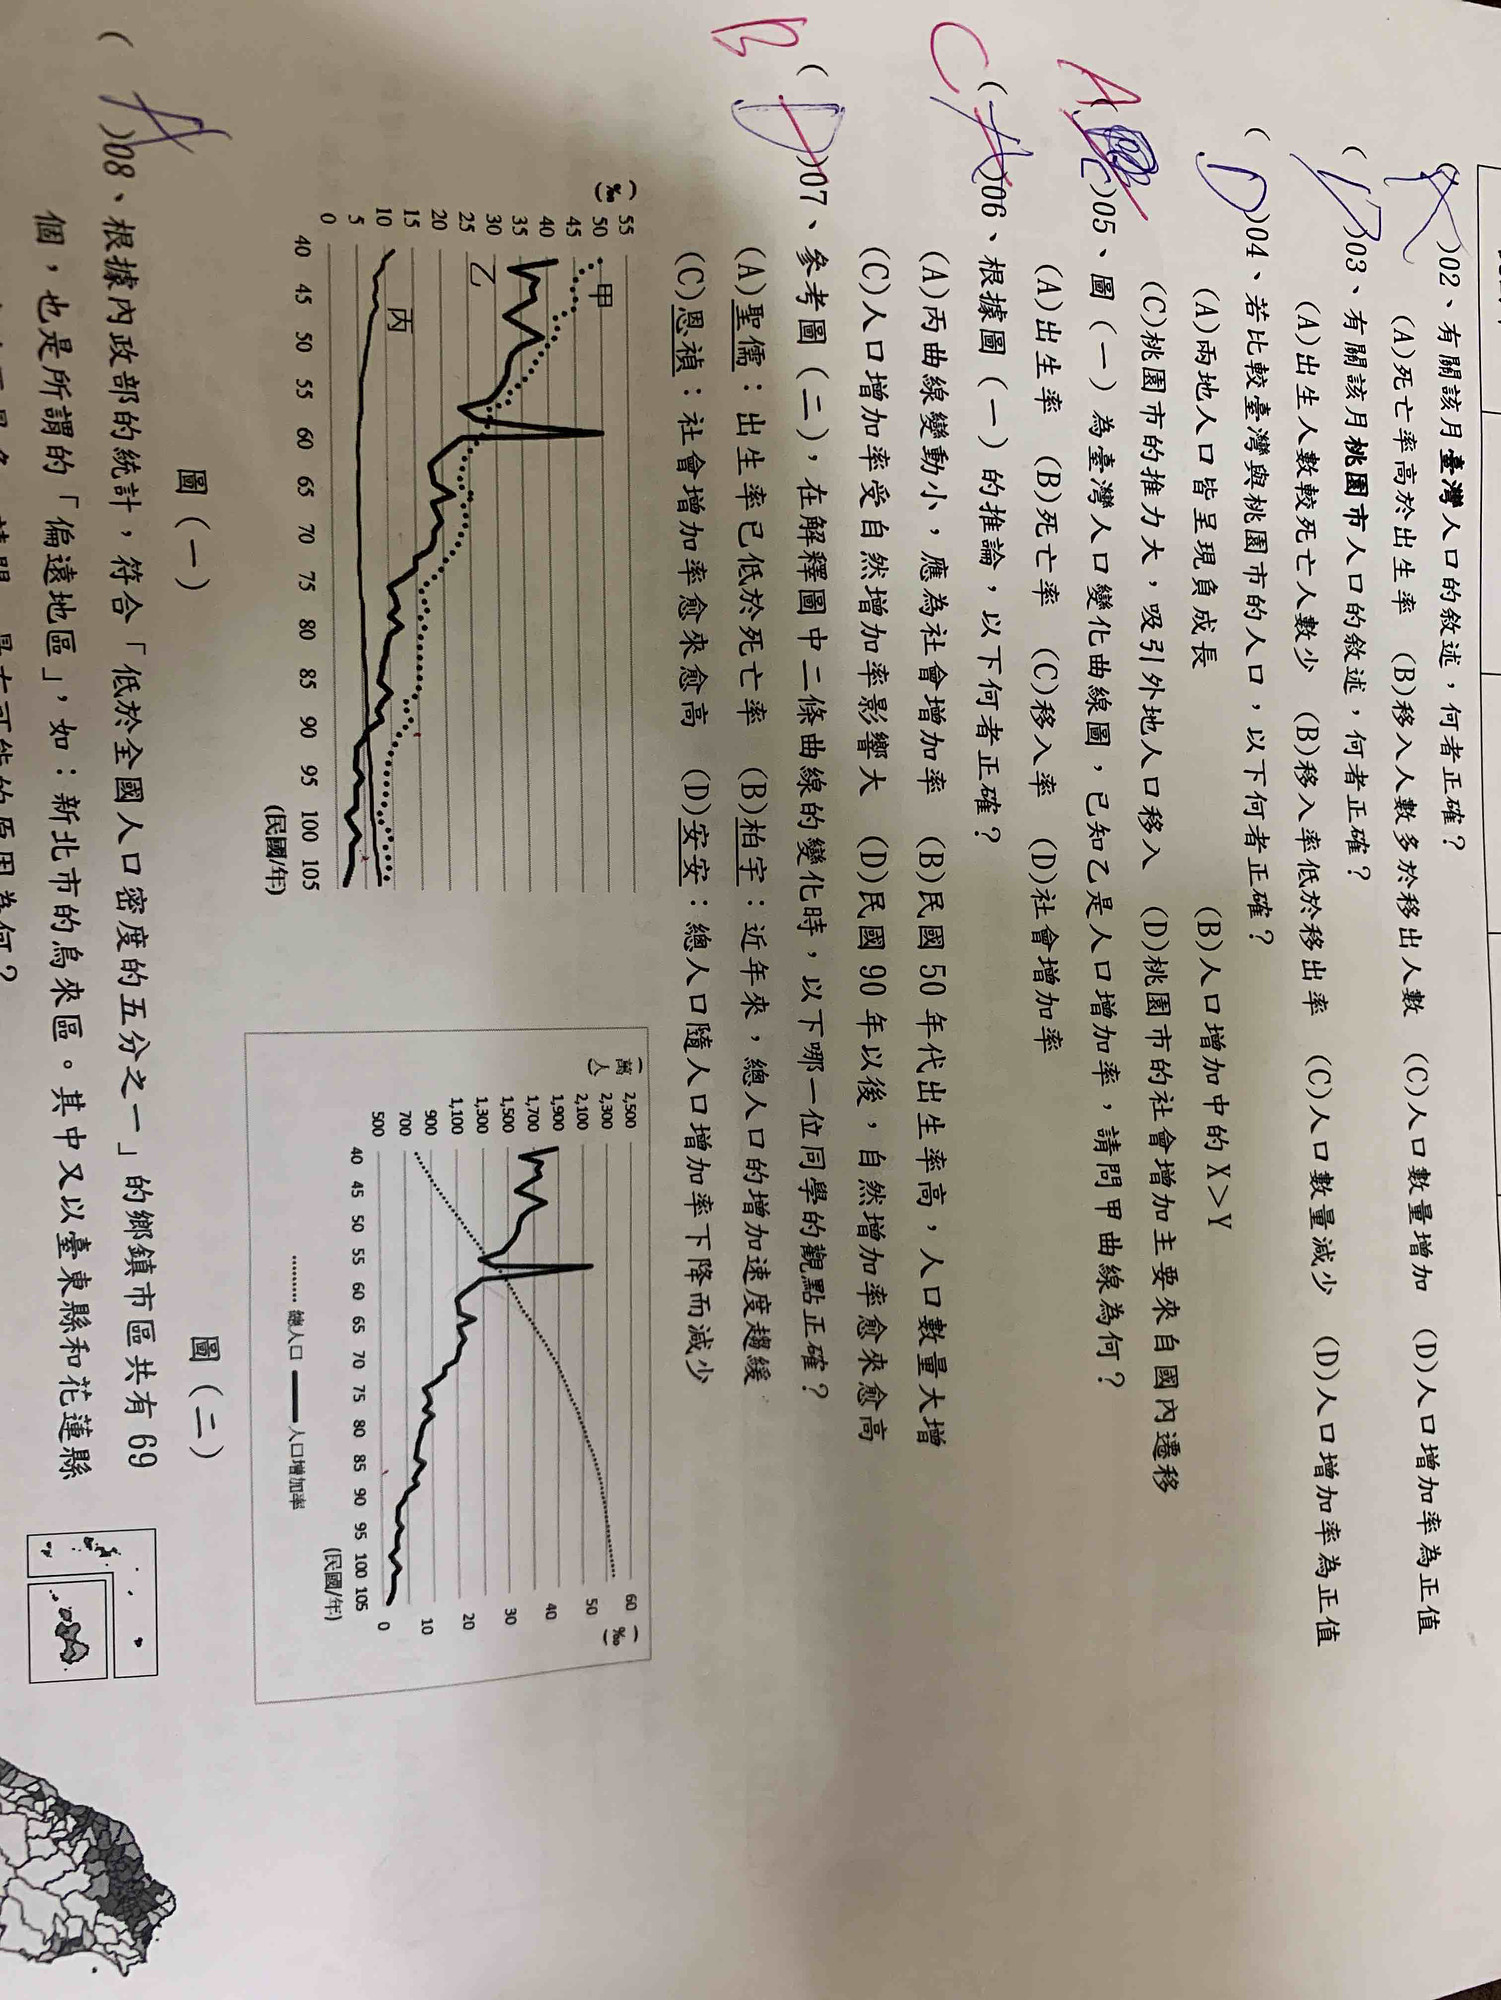 ( A )02、有關該月臺灣人口的敘述，何者正確？
(A)死亡率高於出生率 (B)移入人數多於移出人數 (C)人口數量增加 (D)人口增加率為正值
( D )03、有關該月桃園市人口的敘述，何者正確？
(A)出生人數較死亡人數少 (B)移入率低於移出率 (C)人口數量減少 (D)人口增加率為正值
( D )04、若比較臺灣與桃園市的人口，以下何者正確？
(A)兩地人口皆呈現負成長 (B)人口增加中的X>Y
(C)桃園市的推力大，吸引外地人口移入 (D)桃園市的社會增加主要來自國內遷移
A ( C )05、圖(一)為臺灣人口變化曲線圖，已知乙是人口增加率，請問甲曲線為何？
(A)出生率 (B)死亡率 (C)移入率 (D)社會增加率
C ( A )06、根據圖(一)的推論，以下何者正確？
(A)丙曲線變動小，應為社會增加率 (B)民國50年代出生率高，人口數量大增
(C)人口增加率受自然增加率影響大 (D)民國90年以後，自然增加率愈來愈高
B ( D )07、參考圖(二)，在解釋圖中二條曲線的變化時，以下哪一位同學的觀點正確？
(A)聖儒：出生率已低於死亡率 (B)柏宇：近年來，總人口的增加速度趨緩
(C)恩禎：社會增加率愈來愈高 (D)安安：總人口隨人口增加率下降而減少
(‰)
55
50
45
40
35
30
25
20
15
10
5
0
甲
乙
丙
40 45 50 55 60 65 70 75 80 85 90 95 100 105
(民國/年)
圖(一)
(萬人)
2,500
2,300
2,100
1,900
1,700
1,500
1,300
1,100
900
700
500
60
50
40
30
20
10
0
(‰)
40 45 50 55 60 65 70 75 80 85 90 95 100 105
(民國/年)
總人口 人口增加率
圖(二)
( A )08、根據內政部的統計，符合「低於全國人口密度的五分之一」的鄉鎮市區共有69
個，也是所謂的「偏遠地區」，如：新北市的烏來區。其中又以臺東縣和花蓮縣